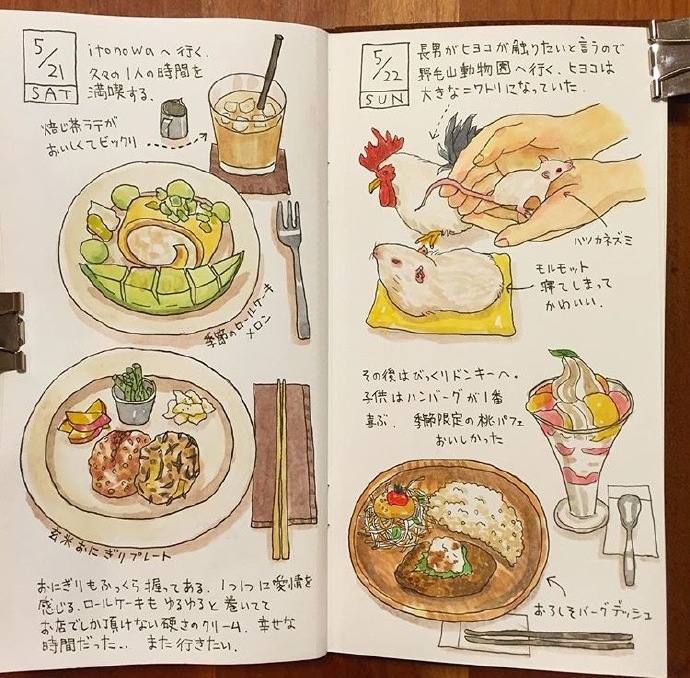 5/21
SAT
itonowaへ行く.
久々の1人の時間を
満喫する.
焙じ茶ラテが
おいしくてビックリ
季節のロールケーキ
メロン
玄米おにぎりプレート
おにぎりもふっくら握ってある. 1つ1つに愛情を
感じる. ロールケーキもゆるゆると巻いてて
お店でしか頂けない硬さのクリーム. 幸せな
時間だった… また行きたい.
5/22
SUN
長男がヒヨコが触りたいと言うので
野毛山動物園へ行く. ヒヨコは
大きなニワトリになっていた.
ハツカネズミ
モルモット
寝てしまって
かわいい.
その後はびっくりドンキーへ.
子供はハンバーグが1番
喜ぶ. 季節限定の桃パフェ
おいしかった
おろしそバーグディッシュ